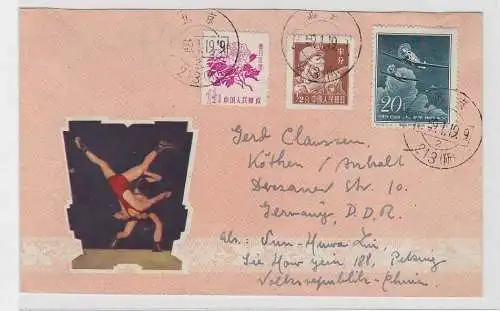 北京
59.1.19.9
中国人民邮政
半分
中国人民邮政
20
Gerd Claussen,
Köthen / Anhalt
Dessauer Str. 10
Germany, D.D.R.
Abs.: Sun-Huwa Lin,
Sie How yein 188, Peking
Volksrepublik-China